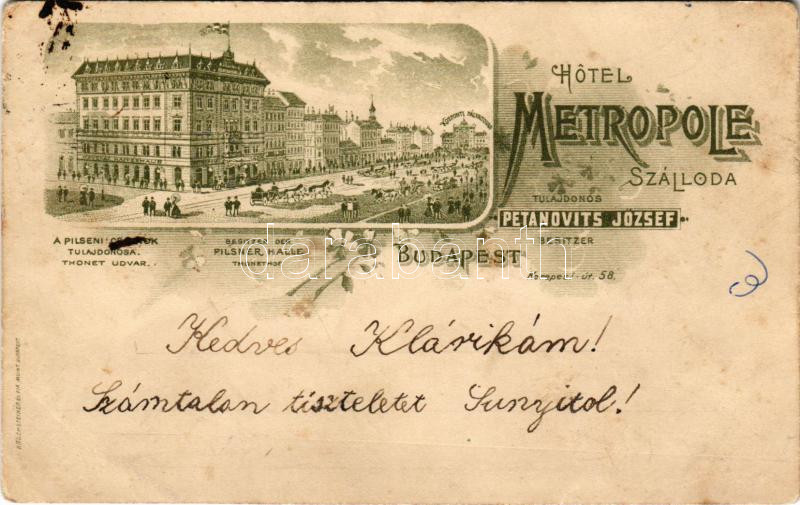 HÔTEL
METROPOLE
SZÁLLODA
TULAJDONOS
PETANOVITS JÓZSEF
BESITZER
BUDAPEST
Kerepesi-út. 58.
A PILSENI
TULAJDONOSA.
THONET UDVAR.
BESITZER DER
PILSNER HALLE
THONETHOF
darabanth
Kedves Klárikám!
Számtalan tiszteletet Sunyitol!